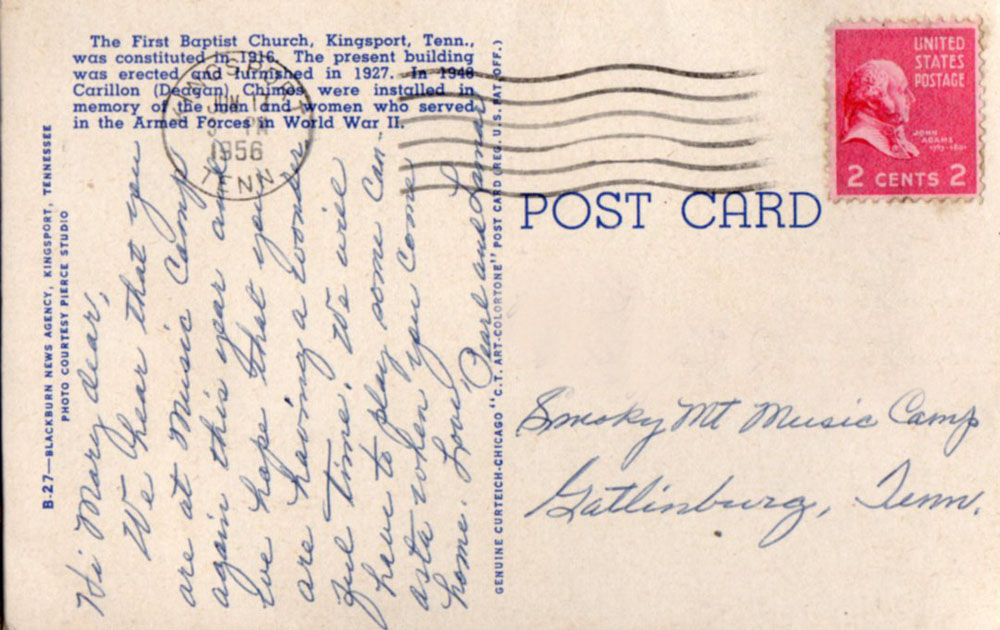 The First Baptist Church, Kingsport, Tenn.,
was constituted in 1916. The present building
was erected and furnished in 1927. In 1948
Carillon (Deagan) Chimes were installed in
memory of the men and women who served
in the Armed Forces in World War II.
KINGSPORT
JUN
PM
1956
TENN
UNITED
STATES
POSTAGE
JOHN
ADAMS
1797-1801
2 CENTS 2
POST CARD
B-27—BLACKBURN NEWS AGENCY, KINGSPORT, TENNESSEE
PHOTO COURTESY PIERCE STUDIO
Hi Mary dear,
We hear that you
are at Music Camp
again this year and
we hope that you
are having a wonder
ful time. We will
have to play some Can-
asta when you come
home. Love, Pearl and Lamar
GENUINE CURTEICH-CHICAGO "C.T. ART-COLORTONE" POST CARD (REG. U.S. PAT. OFF.)
Smoky Mt Music Camp
Gatlinburg, Tenn.